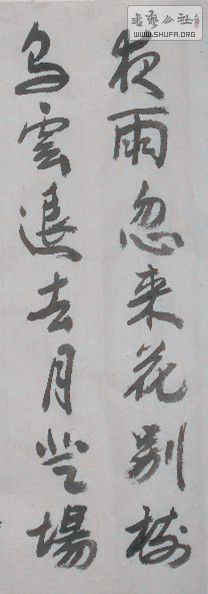 夜雨忽来花别树
乌雲退去月登場
書藝公社
WWW.SHUFA.ORG